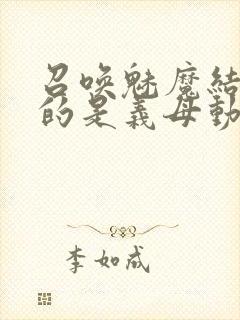 召唤魅魔结
的是義母動
李如成